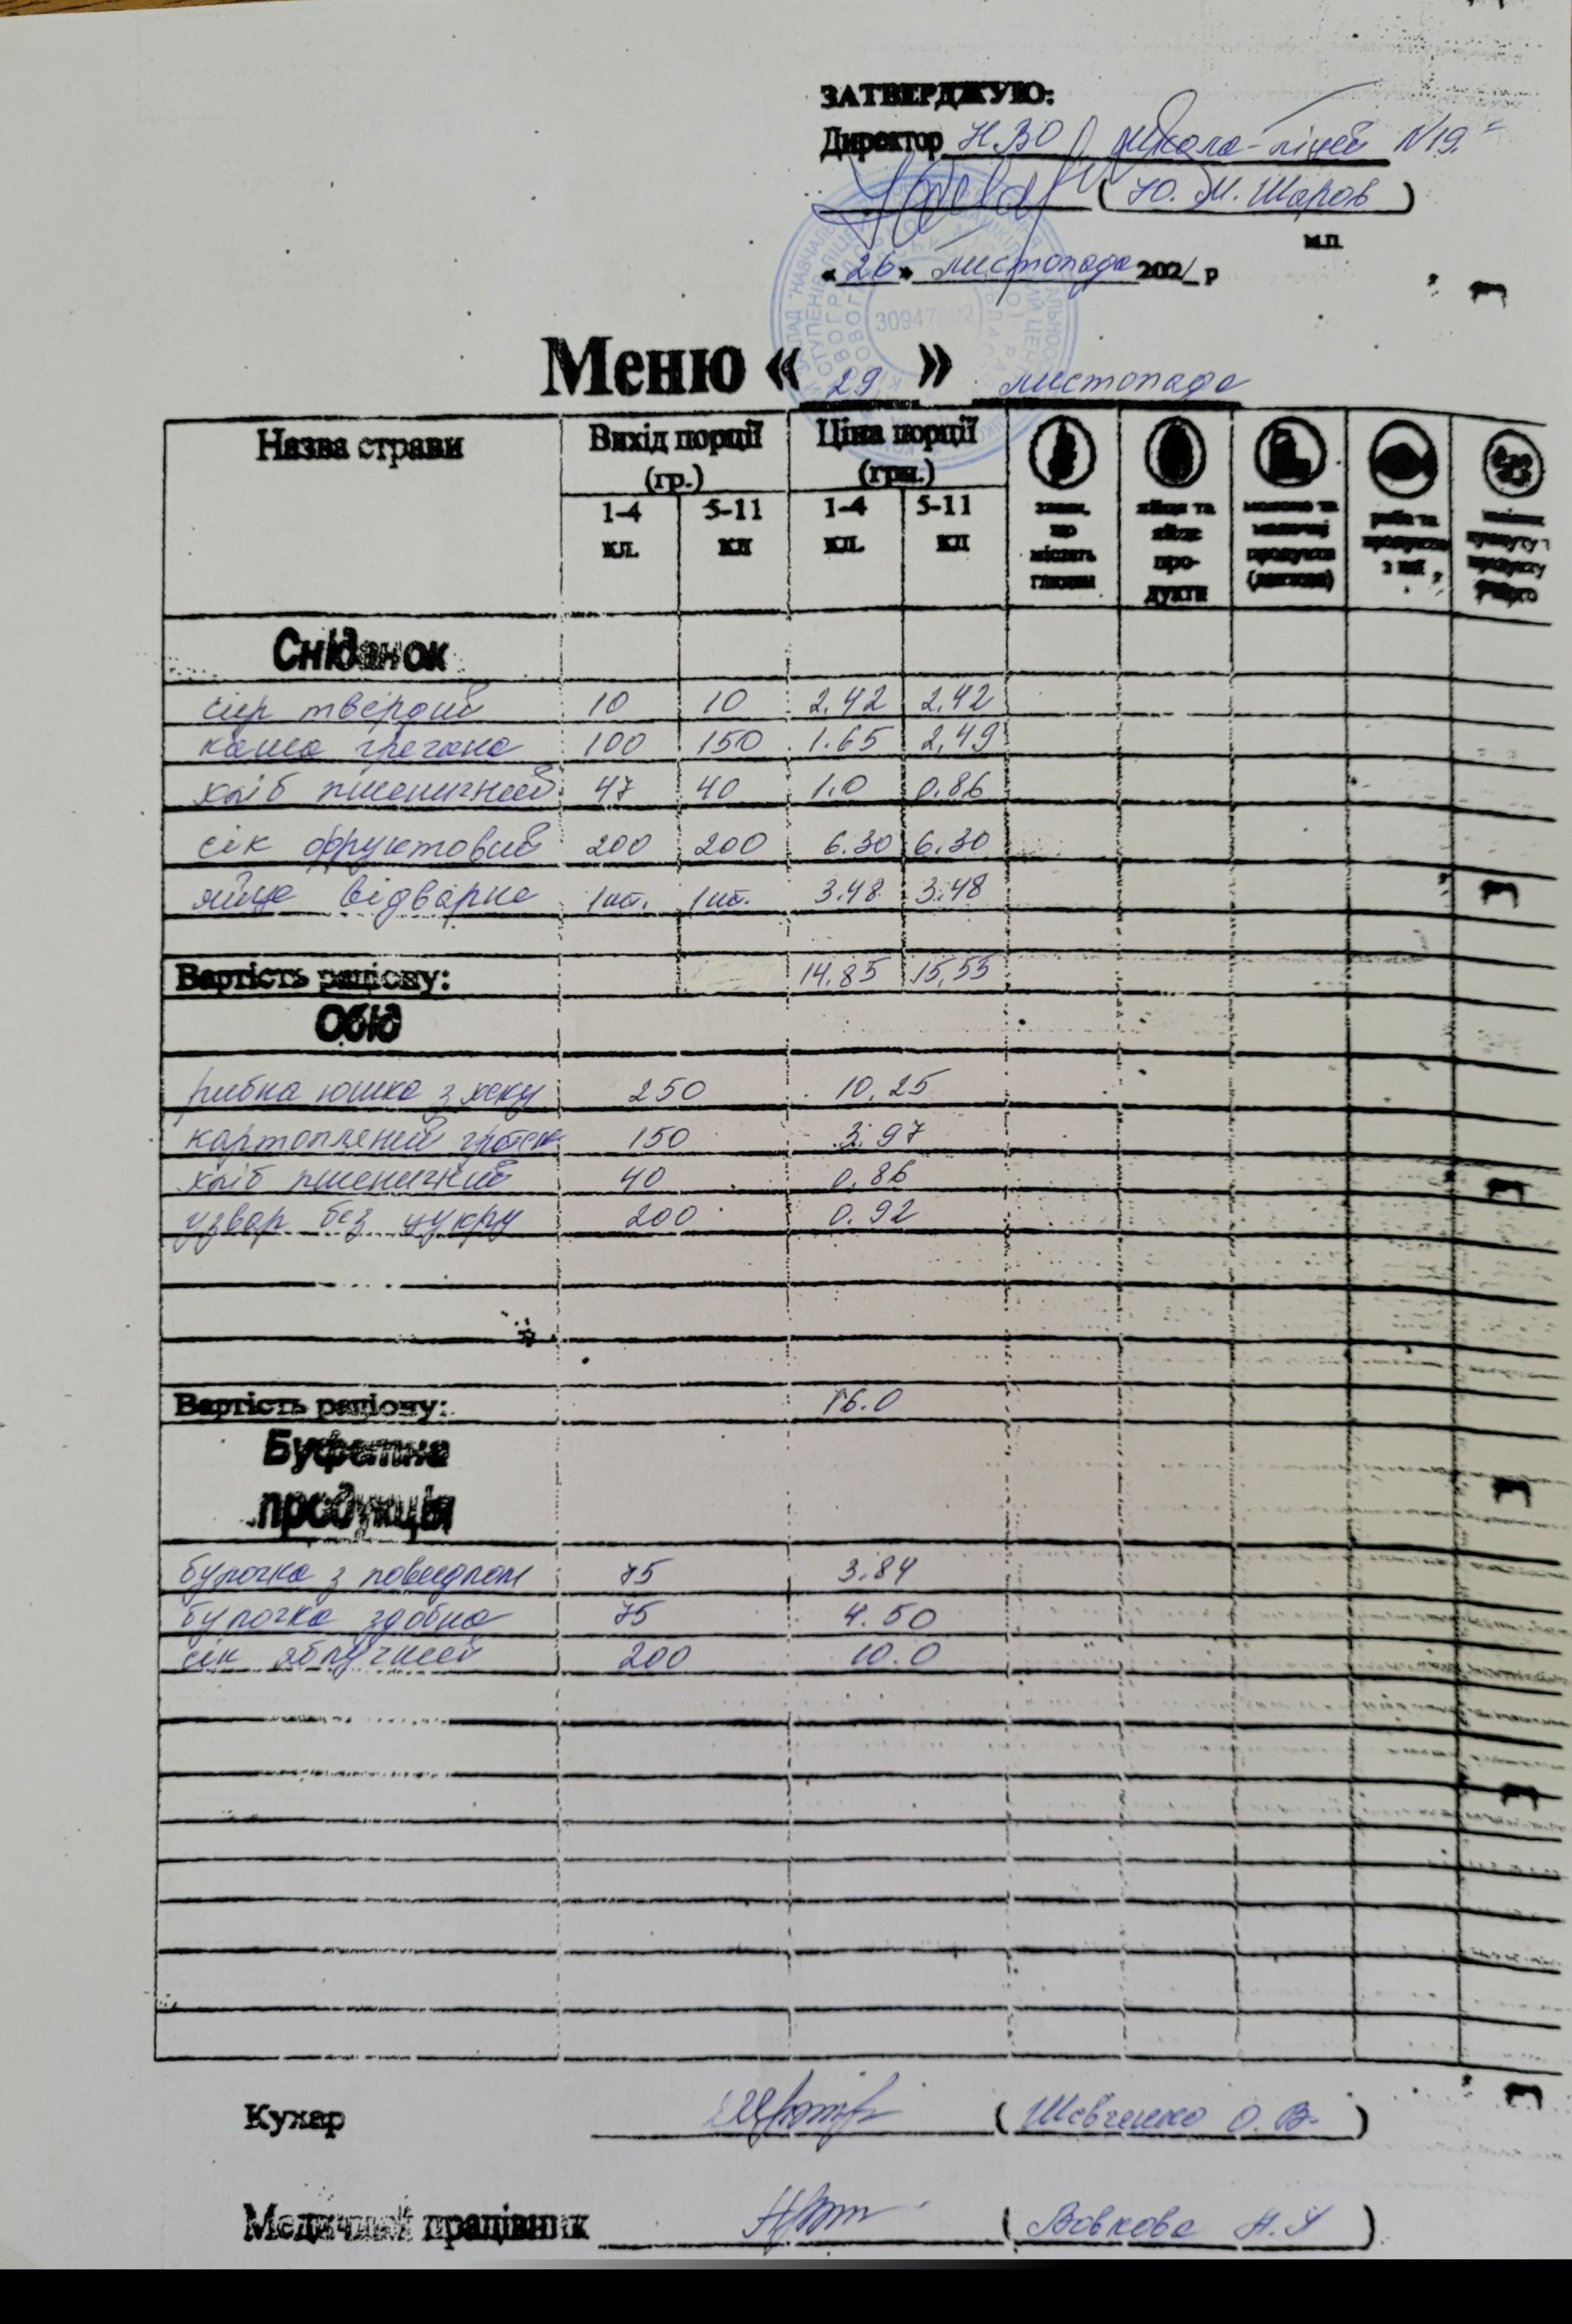 ЗАТВЕРДЖУЮ:
Директор НВО школа-ліцей N19"
(Ю. М. Шаров)
м.п.
«26» листопада 2021 р
Меню «29» листопада
Назва страви Вихід порції (гр.) Ціна порції (грн.)
1-4 кл. 5-11 кл 1-4 кл. 5-11 кл
злаки, що містять глютен
яйця та яйце про-дукти
молоко та молочні продукти (лактоза)
риба та продукти з неї
кунжуту продукту
Сніданок
сир твердий 10 10 2.42 2,42
каша гречана 100 150 1.65 2,49
хліб пшеничний 47 40 1.0 0.86
сік фруктовий 200 200 6.30 6.30
яйце відварне 1шт. 1шт. 3.48 3.48
Вартість раціону: 14.85 15,55
Обід
рибна юшка з хеку 250 10,25
картопляний 150 3.97
хліб пшеничний 40 0.86
узвар без цукру 200 0.92
Вартість раціону: 16.0
Буфетна
продукція
булочка з повидлом 75 3.84
булочка здобна 75 4.50
сік яблучний 200 10.0
Кухар (Шевченко О. В.)
Медичний працівник (Вовкова Н.)
30947992